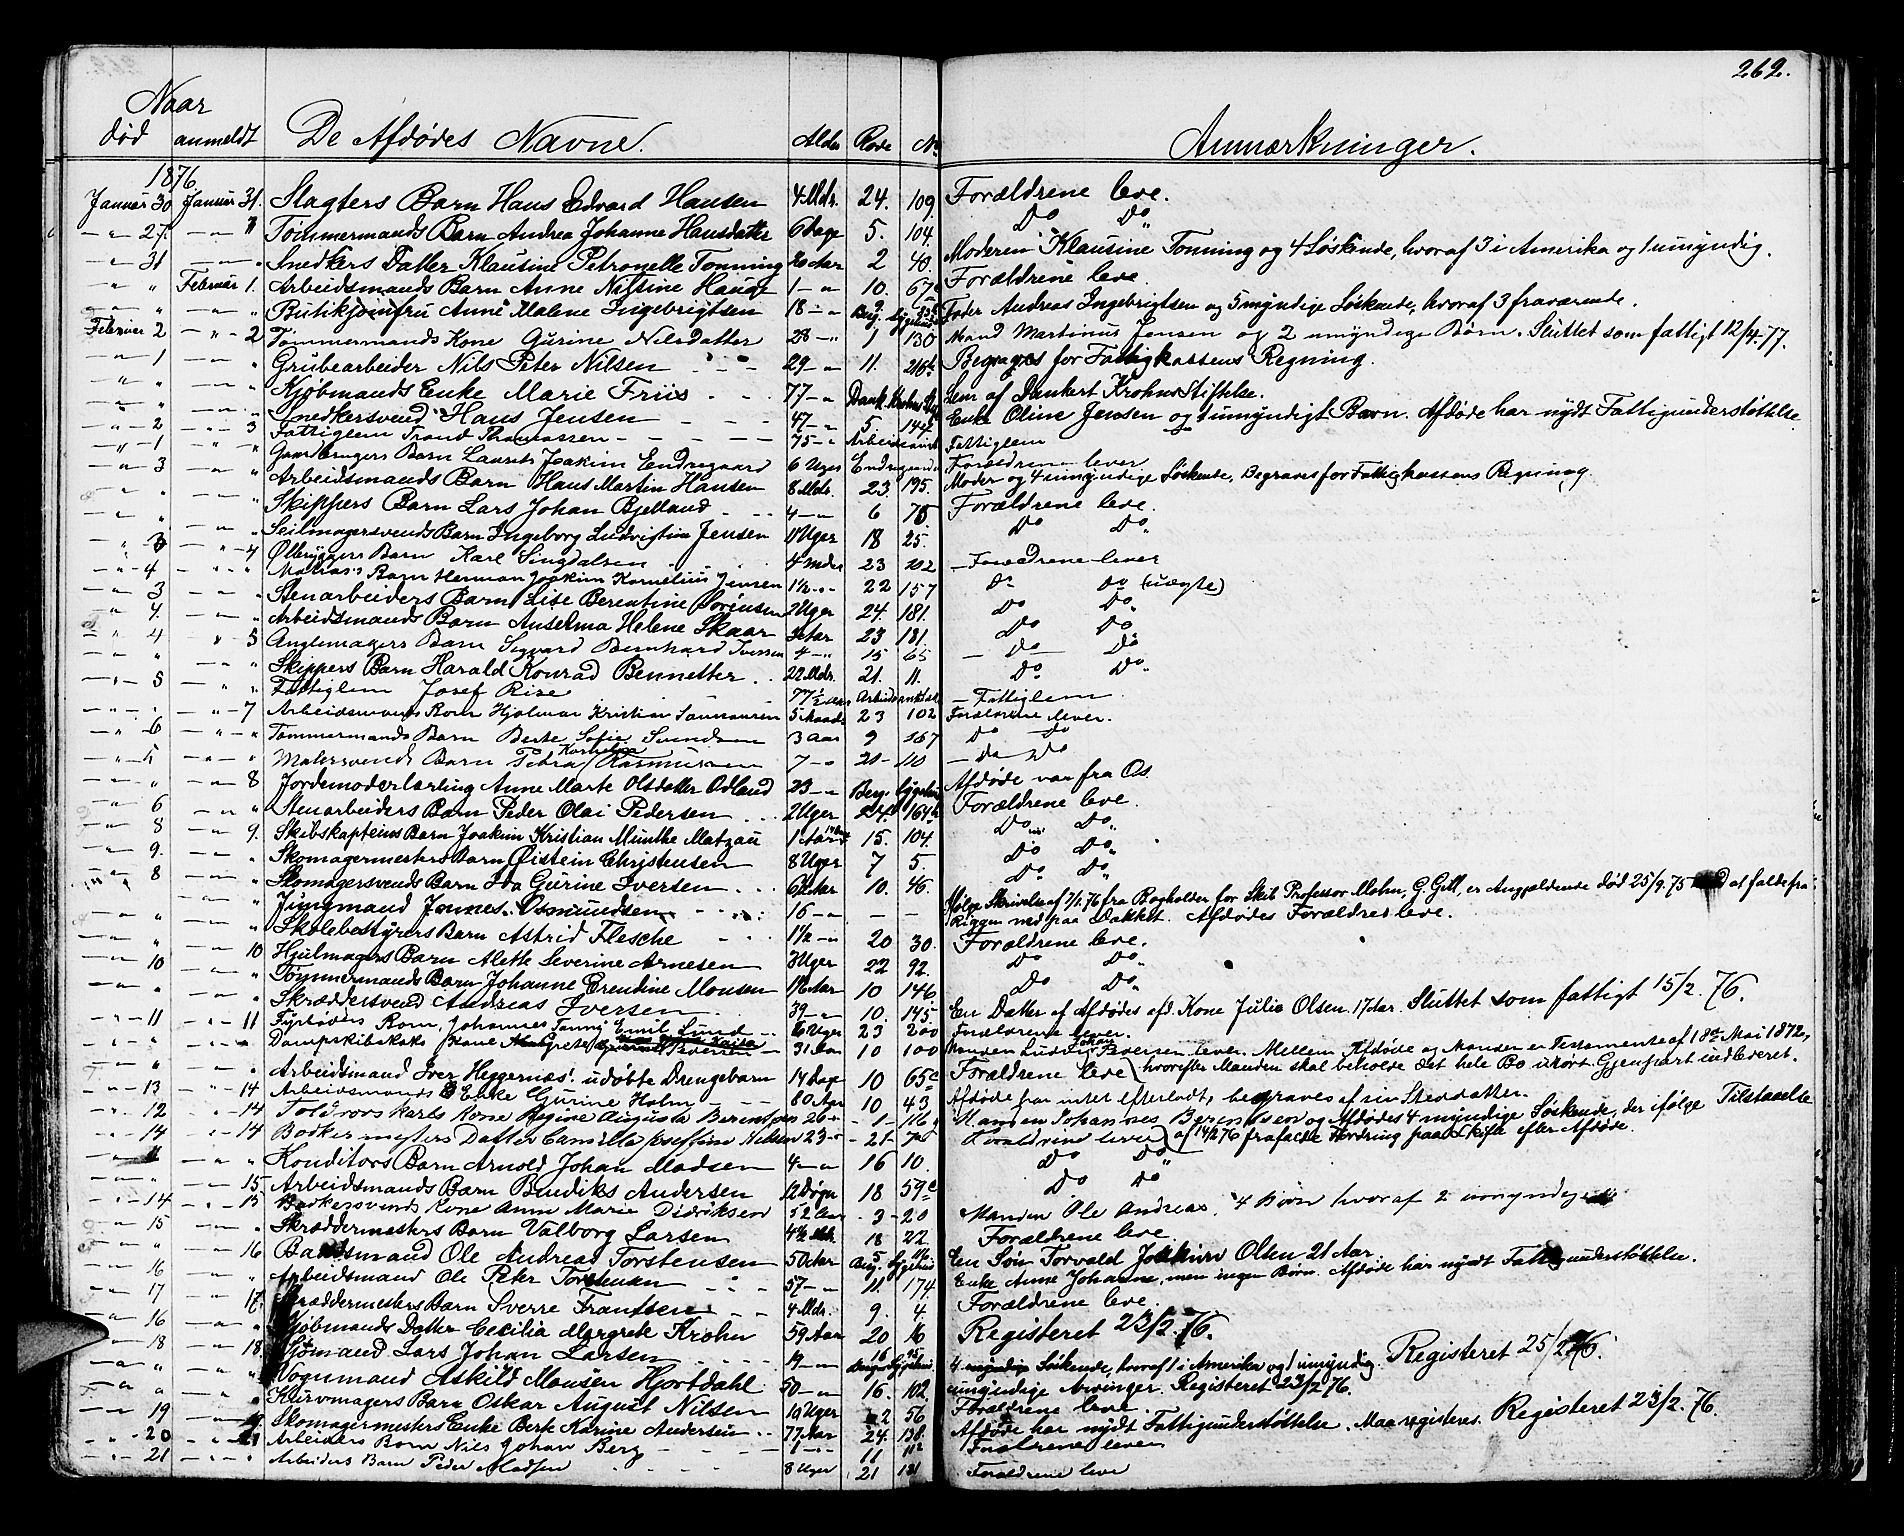 262.
Naar
død anmeldt De Afdødes Navne. Alder Rode No Anmærkninger.
1876.
Januar 30 Januar 31. Slagters Barn Hans Edvard Hansen 4 Mdr. 24. 109. Forældrene leve.
— " 27. — " " Tømmermands Barn Andrea Johanne Hansdatter 6 Dage 5. 104. Do Do
— " 31 — " " Snedkers Datter Klautine Petronelle Tonning 20 Aar 2 40. Moderen Klausine Tonning og 4 Søskende, hvoraf 3 i Amerika og 1 umyndig.
— " " Februar 1. Arbeidsmands Barn Anne Nilsine Hauge 1 — " 10. 67 Forældrene leve
— " " — " " Butikjomfru Anne Malene Ingebrigtsen 18 — " Berg. Sygehus Fader Andreas Ingebrigtsen og 5 myndige Søskende, hvoraf 3 fraværende.
Februar 2 — " 2 Tømmermands Kone Gurine Nilsdatter 28 — " 1 130 Mand Martinus Jensen og 2 umyndige Børn. Sluttet som fattigt 12/4 77.
— " 1 — " " Grubearbeider Nils Peter Nilsen 29 — " 11. Begraves for Fattigkassens Regning.
— " " — " " Kjøbmands Enke Marie Friis 77 — " Dank. Krohns St. Lem af Dankert Krohns Stiftelse.
— " " — " " Snedkersvend Hans Jensen 47 — " 5. 144 Enke Oline Jensen og 1 umyndigt Barn. Afdøde har nydt Fattigunderstøttelse
— " 2 — " 3 Fattiglem Trond Thomassen 75 — " Arbeidsanst Fattiglem
— " 1 — " " Gaardbrugers Barn Laurits Joakim Endregaard 6 Uger Endregaarden Forældrene lever
— " 3 — " " Arbeidsmands Barn Hans Martin Hansen 8 Mdr. 23. 195. Moder og 4 umyndige Søskende, Begraves for Fattigkassens Regning.
— " " — " " Skippers Barn Lars Johan Bjelland 4 — " 6 75 Forældrene leve.
— " " — " " Seilmagersvends Barn Ingeborg Ludvigtine Jensen 11 Uger 18 25. Do Do
— " 3 — " 4 Ølbryggers Barn Karl Singdalsen 4 Mdr 23 202 Forældrene lever
— " 4 — " " Matros's Barn Herman Joakim Kornelius Jensen 1½ — " 22 157 Do Do (uægte)
— " 3 — " " Stenarbeiders Barn Lise Berentine Sørensen 2 Uger 24. 181. Do Do
— " 4. — " " Arbeidsmands Barn Anselma Helene Skaar 3 Aar 23 181. Do Do
— " 4 — " 5 Anglemagers Barn Sigvard Bernhard Iversen 4 — " 15 65 Do Do
— " " — " " Skippers Barn Harald Konrad Bennetter 22 Mdr. 21. 11. Do Do
— " 5 — " " Fattiglem Josef Rise 77½ Aar Arbeidsanstalt Fattiglem
— " " — " 7 Arbeidsmands Barn Hjalmar Kristian 5 Maan 23 102 Forældrene lever.
— " 6 — " " Tømmermands Barn Berte Sofie Svendsen 3 Aar 9 167 Do Do
— " 5 — " " Malersvends Barn Petra Kornelia Rasmussen 7 — " 20 110 Do Do
— " " — " 8 Jordemoderlærling Anne Marte Olsdatter Odland 23 — " Berg. Sygehus Afdøde var fra Os
— " 6 — " " Stenarbeiders Barn Peder Olai Pedersen 2 Uger 24. 164 Forældrene leve.
— " 8 — " 9. Skibskapteins Barn Joakim Kristian Munthe Matzau 1 Aar 15. 104. Do Do
— " 9. — " " Skomagermesters Barn Øistein Christensen 8 Uger 7 5. Do Do
— " 8 — " " Skomagersvends Barn Ida Gurine Iversen 6 Aar 10. 46. Do Do
— " " — " " Jungmand Jonnes Osmundsen 16 — " — — Ifølge Skrivelse af 7/1 76 fra Bogholder for Skib Professor Mohn, G. Gill, er Angjældende død 25/9. 75 ved at falde fra
Riggen ned paa Dækket. Afdødes Forældre leve.
— " " — " " Skolebestyrers Barn Astrid Flesche 1½ — " 20 30. Forældrene leve.
— " " — " 10 Hjulmagers Barn Alette Severine Arnesen 3 Uger 22 92. Do Do
— " 10 — " " Tømmermands Barn Johanne Erendine Monsen Aar 10 146 Do Do
— " " — " " Skræddersvend Andreas Iversen 39 — " 10. 145 En Datter af Afdødes afd. Kone Julia Olsen 17 Aar. Sluttet som fattigt 15/2. 76.
— " 11 — " 11 Fyrbøders Barn, Johannes Emil Lund 6 Uger 23 200 Forældrene lever.
— " " — " " Dampskibskoks Kone Grete 31 Aar 10 100 Manden Ludvig Johan Iversen lever. Mellem Afdøde og Manden er Testamente af 18de Mai 1872,
— " " — " " Arbeidsmand Iver Heggernæs' udøbte Drengebarn 14 Dage 10 65c Forældrene leve hvorefter Manden skal beholde det hele Bo urørt. Gjenpart indleveret.
— " 13 — " 14 Arbeidsmands Enke Gurine Holm 80 Aar 10 43 Afdøde har intet efterladt, begraves af sin Steddatter.
— " 12 — " 14 Toldrorskarls Kone Regine Augusta Berentsen 26 — " 1 Manden Johannes Berentsen og Afdødes 4 myndige Søskende, der ifølge Tilstaaelse
— " 14 — " 14 Bødkermesters Datter Camilla Josefine Nilsen 23 — " 21 Forældrene lever af 14/2 76 frafaldt Fordring paa Skifte efter Afdøde.
— " 11 — " " Konditors Barn Arnold Johan Madsen 4 — " 16 10. Do Do
— " " — " 15 Arbeidsmands Barn Bendiks Andersen 12 Døgn 18 59c Do Do
— " 14 — " 15 Bødkersvends Kone Anne Marie Didriksen 52 Aar 3 20 Manden Ole Andreas, 4 Børn hvoraf 2 umyndige
— " 15 — " " Skræddermesters Barn Valborg Larsen 4½ Mdr. 18 22 Forældrene leve.
— " " — " 16 Baadsmand Ole Andreas Torstensen 50 Aar Berg. Sygehus En Søn Torvald Joakim Olsen 21 Aar.
— " 16 — " " Arbeidsmand Ole Peter Torstensen 57 — " 11. 174. Enke Anne Johanne, men ingen Børn. Afdøde har nydt Fattigunderstøttelse.
— " 17 — " 17. Skræddermesters Barn Sverre Frantsen 4 Mdr. 9. 4 Forældrene leve.
— " 16 — " " Kjøbmands Datter Cecilia Margrete Krohn 59 Aar 20 16 Registeret 23/2. 76.
— " 18 — " 18. Sjømand Lars Johan Larsen 19 — " Berg. Sygehus 4 Søskende, hvoraf 1 i Amerika og 1 umyndig. Registeret 25/2 76.
— " " — " " Vognmand Askild Monsen Hjortdahl 50 — " 16. 102. umyndige Arvinger. Registeret 23/2 76.
— " " — " " Kurvmagers Barn Oskar August Nilsen 19 Uger 2 56 Forældrene leve.
— " 19 — " " Skomagermesters Enke Berte Karine Andersen 77 Aar 24. 138. Afdøde har nydt Fattigunderstøttelse. Maa registeres. Registeret 23/2. 76.
— " 20 — " 21 Arbeiders Barn Nils Johan Berg 1 — " 11 Forældrene lever
— " 21 — " " Arbeiders Barn Peder Madsen 8 Uger 21 131 Forældrene leve